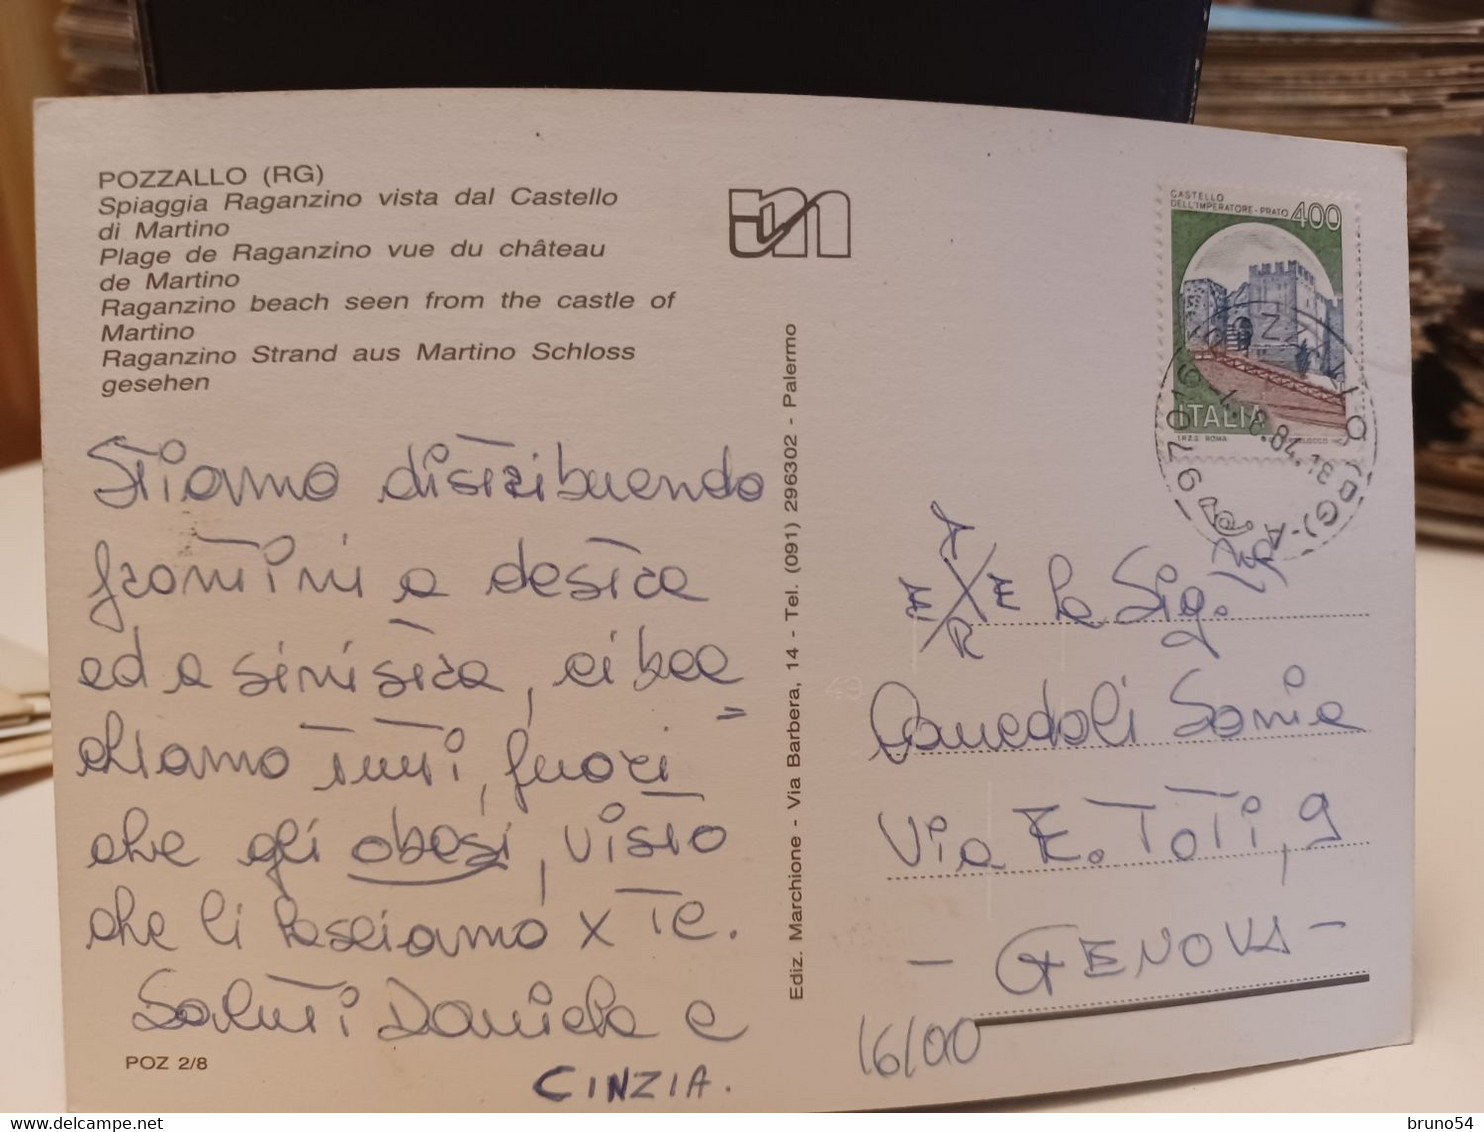 POZZALLO (RG)
Spiaggia Raganzino vista dal Castello
di Martino
Plage de Raganzino vue du château
de Martino
Raganzino beach seen from the castle of
Martino
Raganzino Strand aus Martino Schloss
gesehen
Stiamo distribuendo
frontini a destra
ed a sinistra, ci bec=
chiamo tutti, fuori
che gli obesi, visto
che li lasciamo x te.
Saluti Daniela e
CINZIA.
POZ 2/8
Ediz. Marchione - Via Barbera, 14 - Tel. (091) 296302 - Palermo
CASTELLO
DELL'IMPERATORE - PRATO 400
ITALIA
I.P.Z.S. ROMA
97016 POZZALLO (RG) - A
-1.8.84.18
la Sig.na
Canedoli Sonia
Via E. Toti, 9
- GENOVA -
16100
bruno54